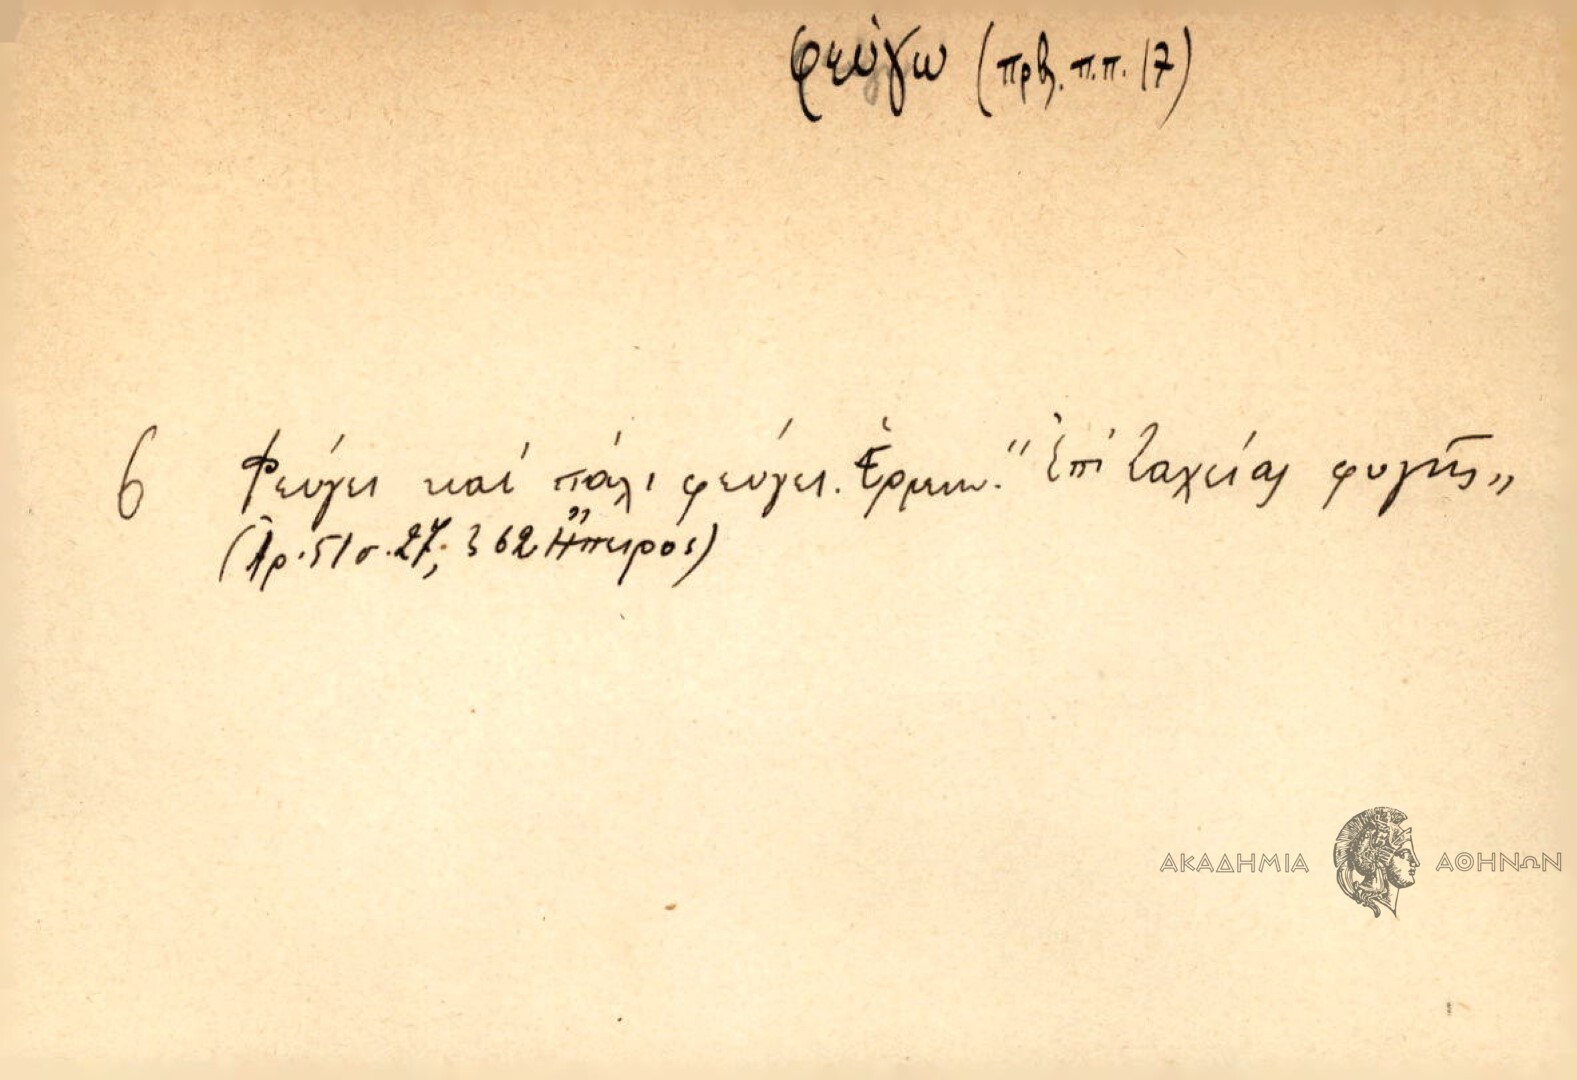 φεύγω (πρβ. π.π. 17)
6 Φεύγει καί πάλι φεύγει. Ἑρμην. "Ἐπί ταχείας φυγῆς"
(Ἀρ. 51 σ. 27, 362 Ἤπειρος)
ΑΚΑΔΗΜΙΑ ΑΘΗΝΩΝ